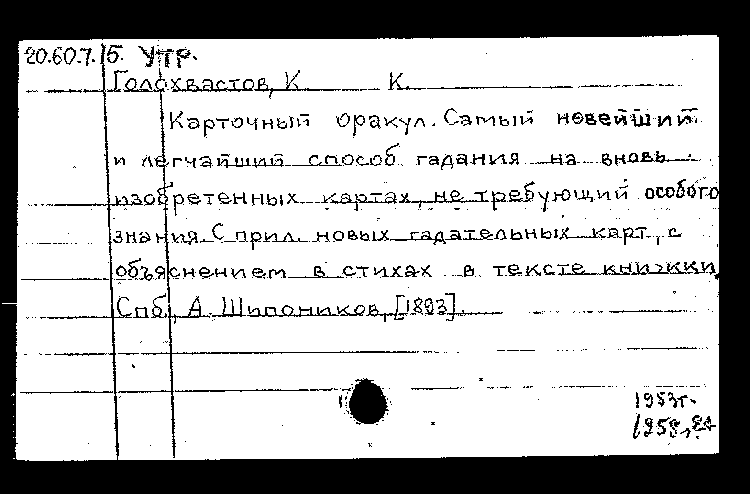 20.60.7.15. Утр.
Голохвастов, К К.
Карточный оракул. Самый новейший
и легчайший способ гадания на вновь
изобретенных картах, не требующий особого
знания. С прил. новых гадательных карт, с
объяснением в стихах в тексте книжки
Спб, А. Шипоников, [1893].
1953г.
1958,